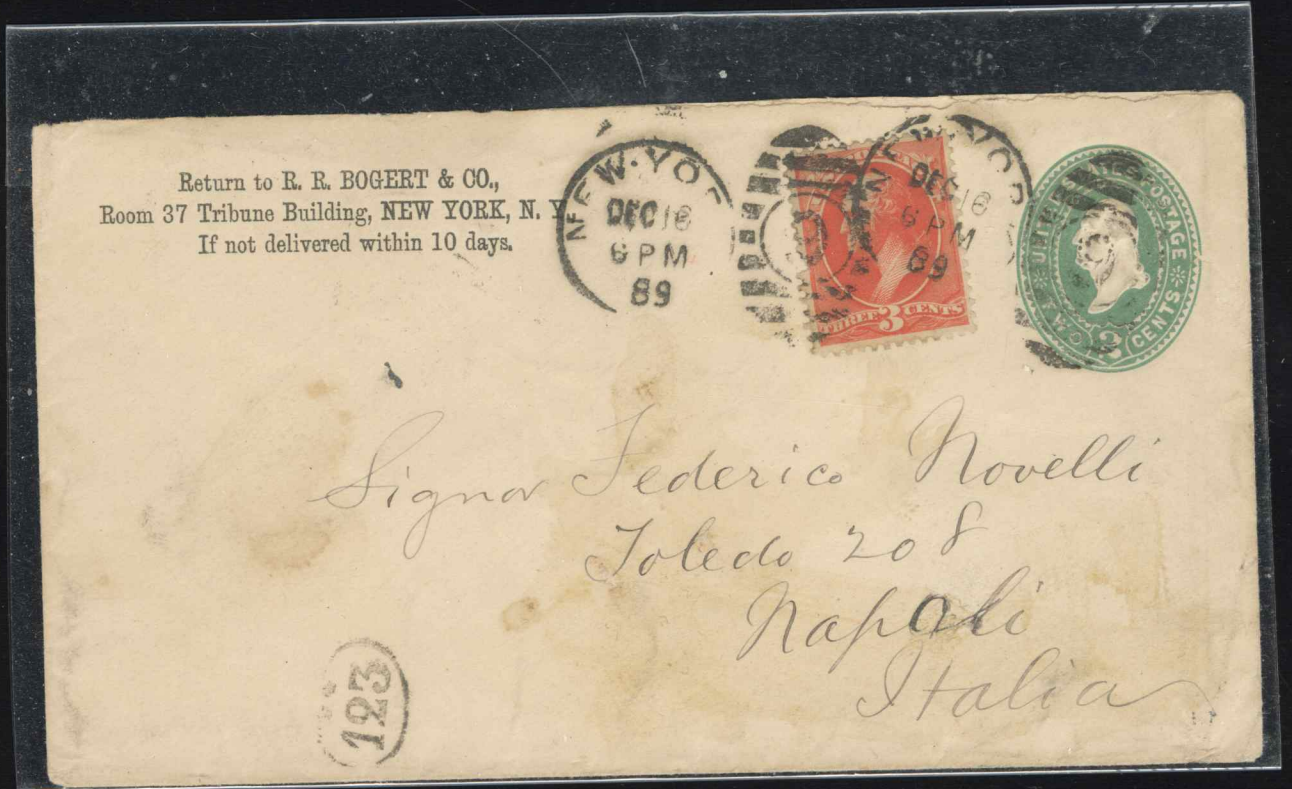 Return to R. R. BOGERT & CO.,
Room 37 Tribune Building, NEW YORK, N. Y
If not delivered within 10 days.
NEW YOR
DEC 16
6 PM
89
NEW YOR
DEC 16
6 PM
89
THREE 3 CENTS
UNITED STATES POSTAGE
2 CENTS
Signor Federico Novelli
Toledo 208
Napoli
Italia
123